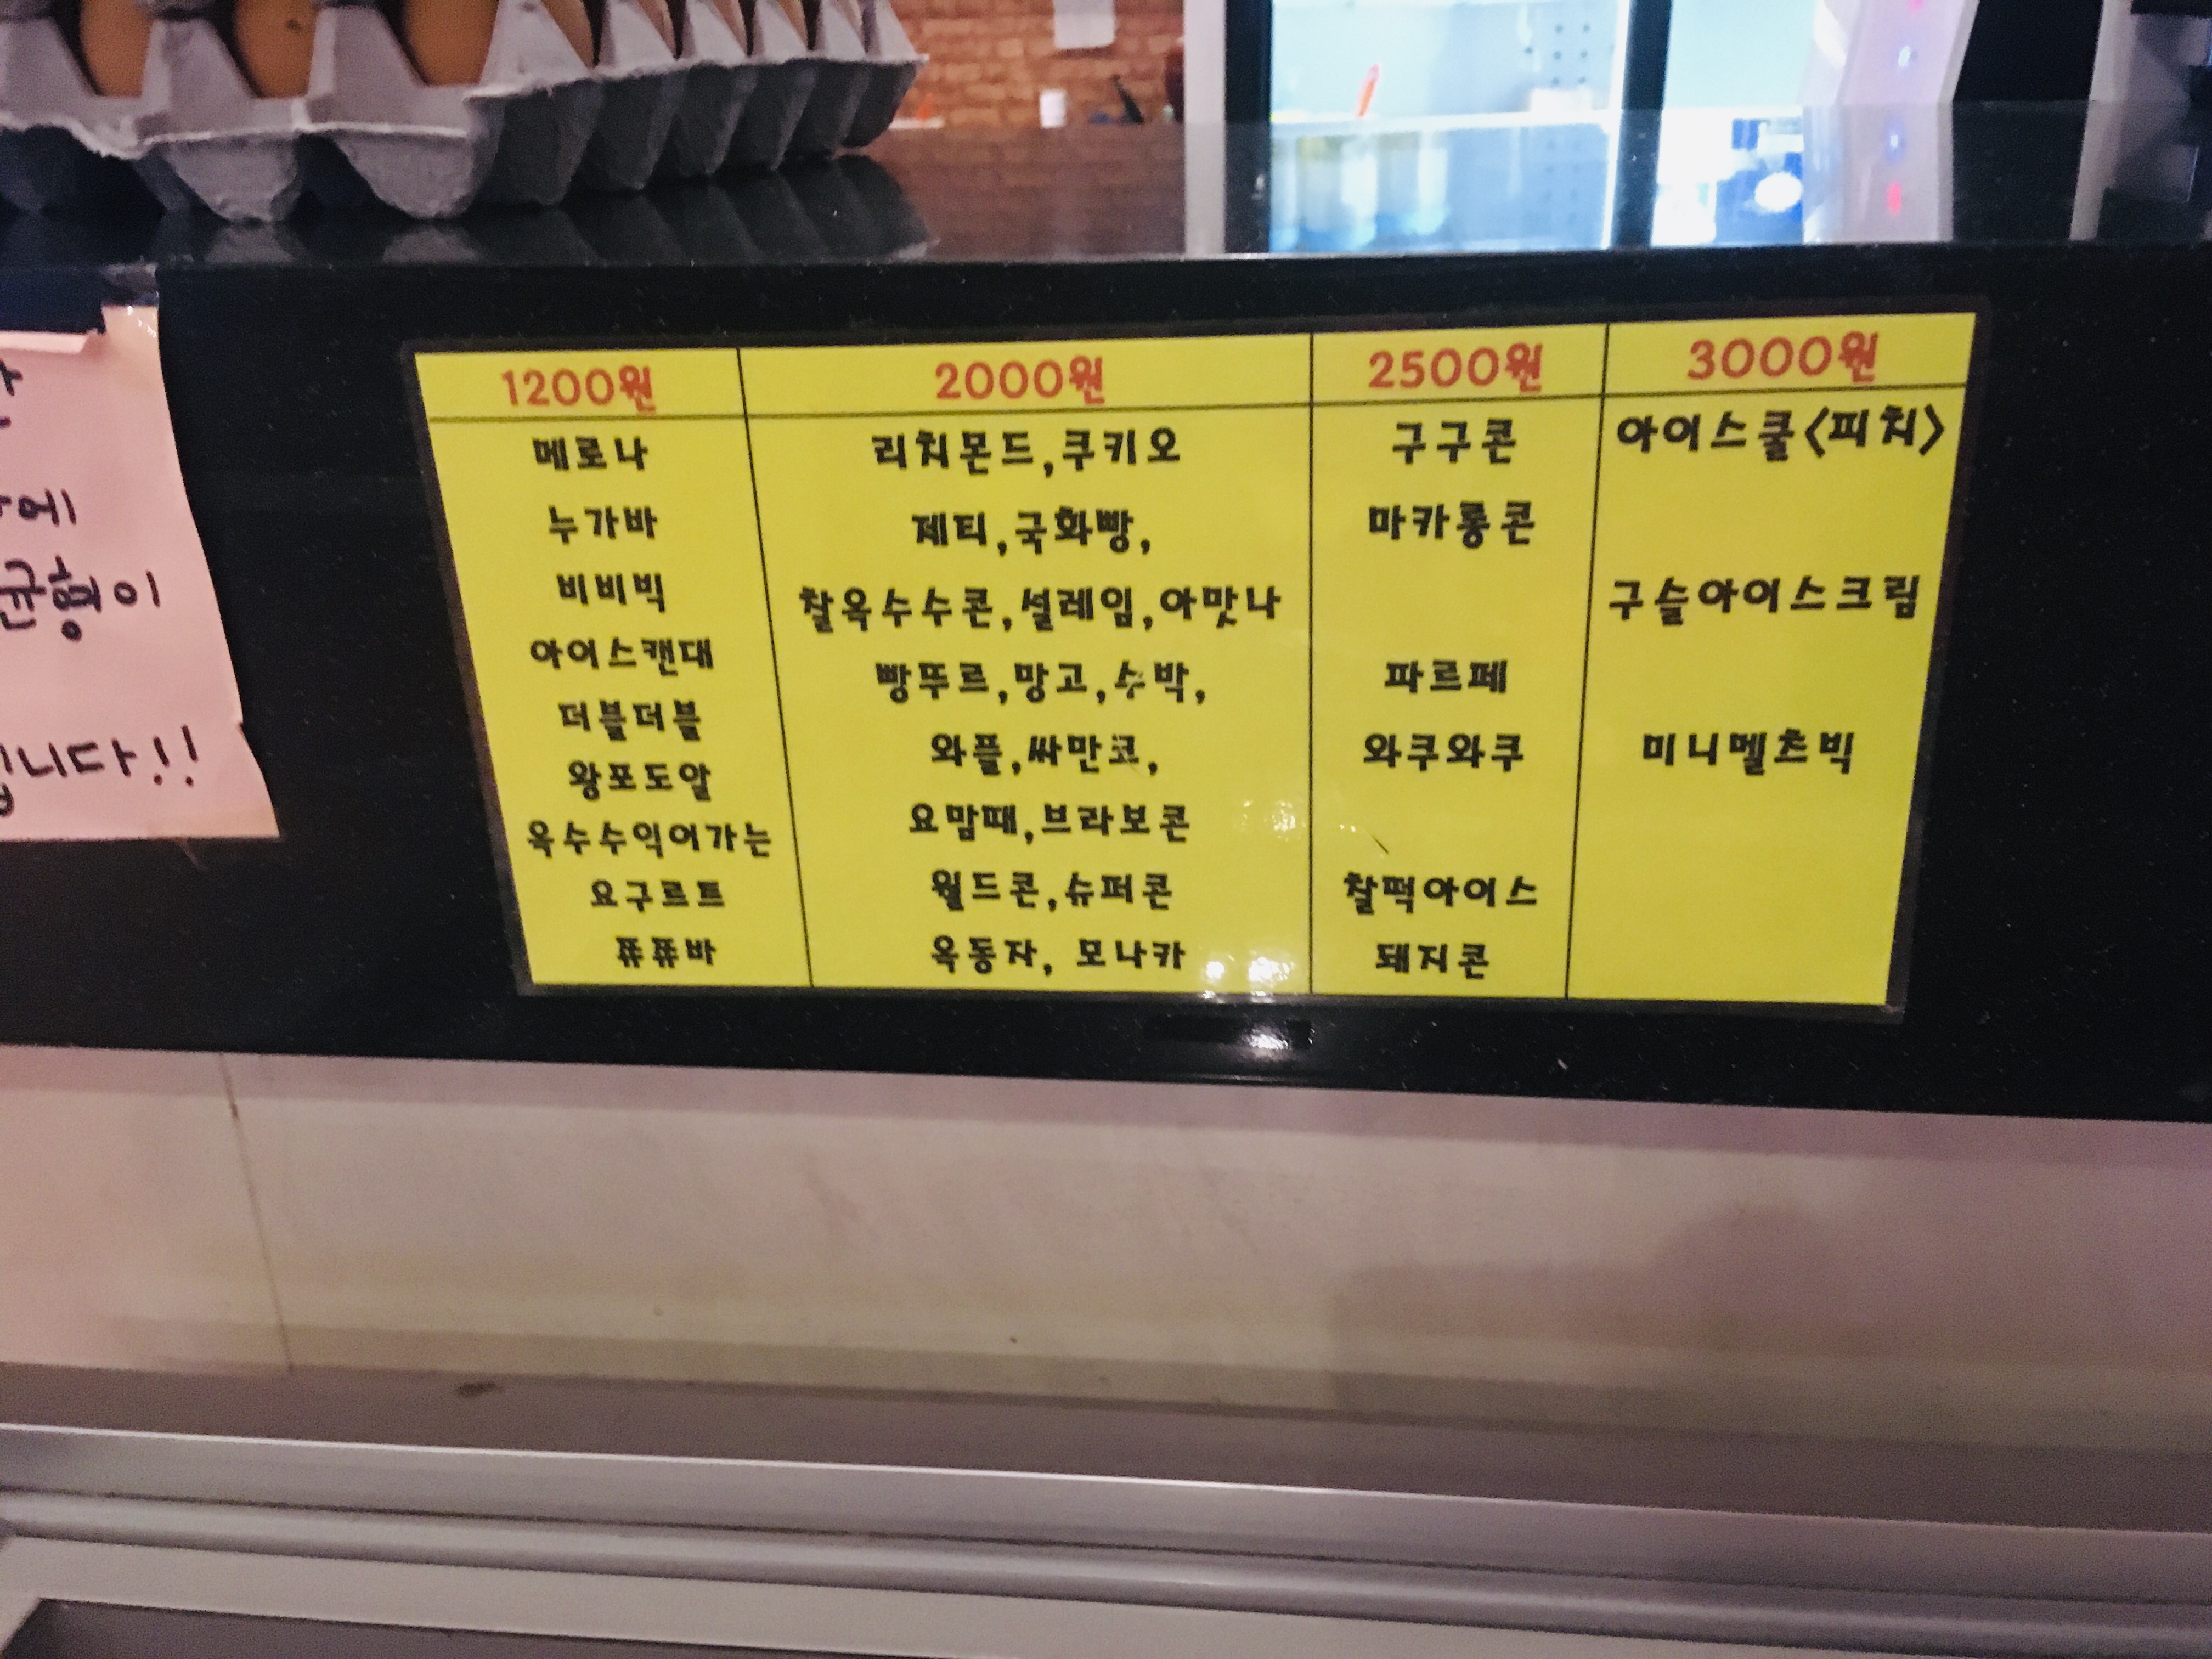 1200원
메로나
누가바
비비빅
아이스캔대
더블더블
왕포도알
옥수수익어가는
요구르트
쮸쮸바
2000원
리치몬드,쿠키오
제티,국화빵,
찰옥수수콘,설레임,아맛나
빵뚜르,망고,수박,
와플,싸만코,
요맘때,브라보콘
월드콘,슈퍼콘
옥동자, 모나카
2500원
구구콘
마카롱콘
파르페
와쿠와쿠
찰떡아이스
돼지콘
3000원
아이스쿨<피치>
구슬아이스크림
미니멜츠빅
에
균형이
니다!!